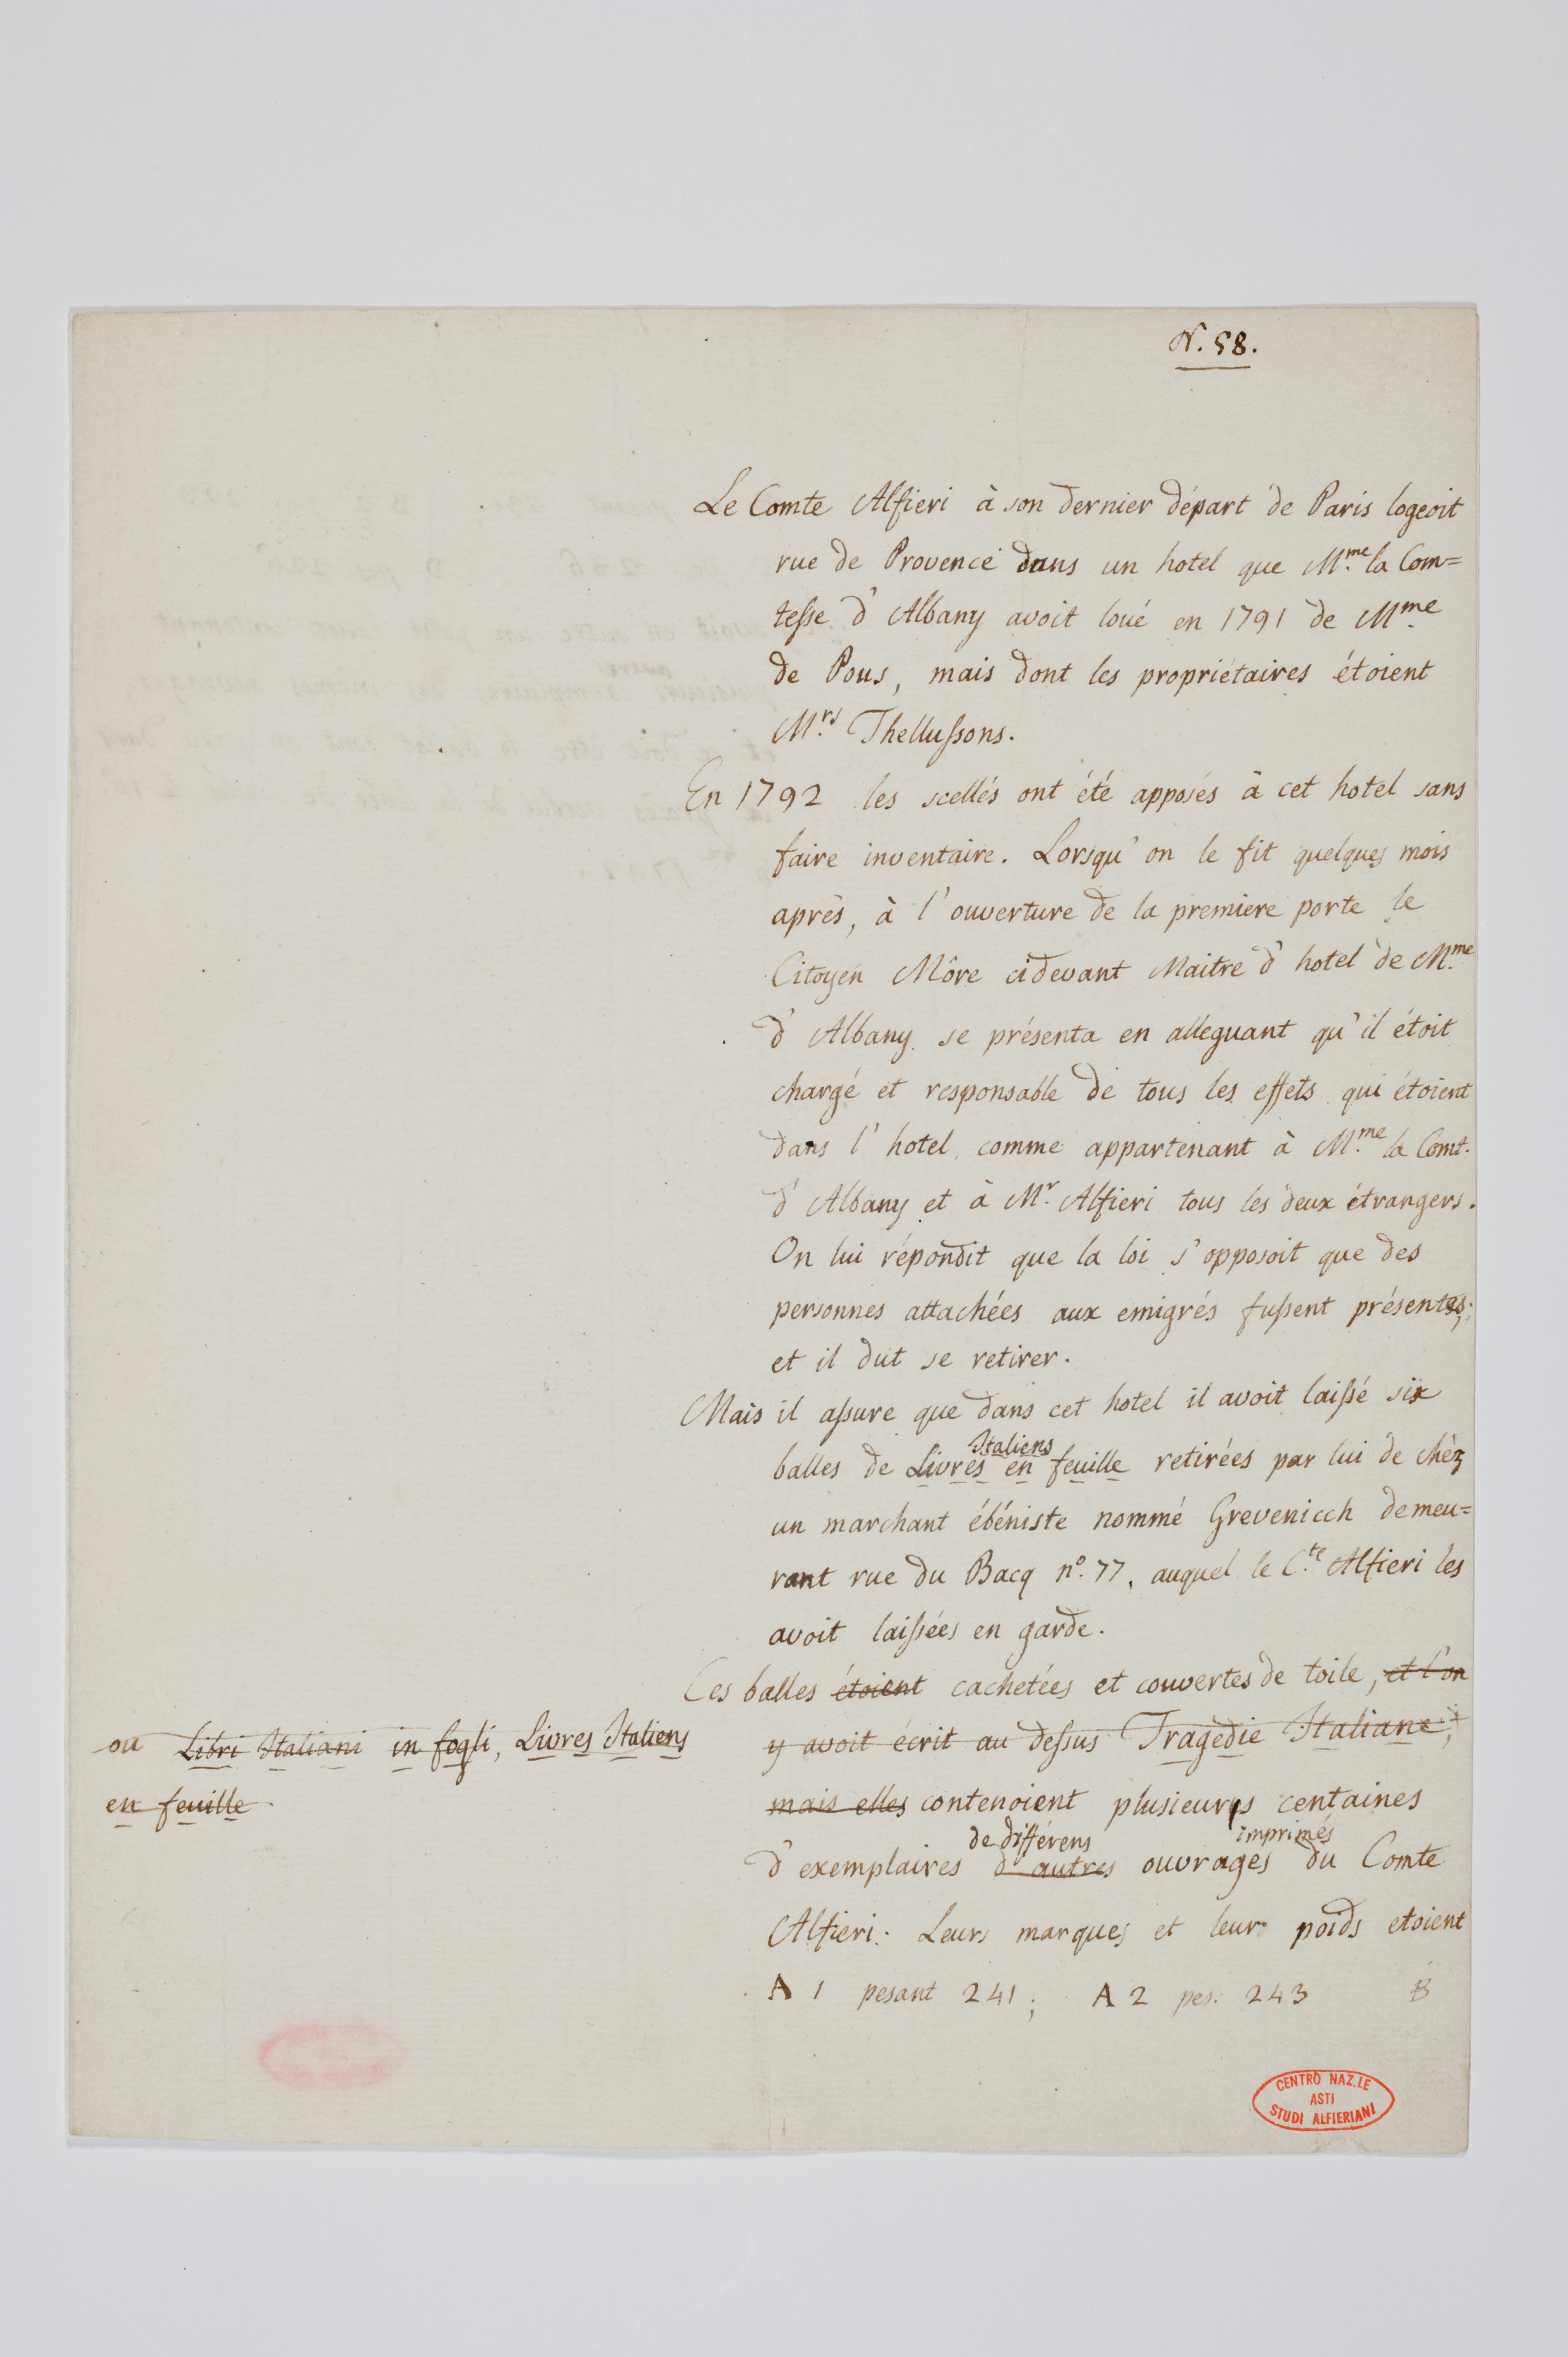 N. 58.
Le Comte Alfieri à son dernier départ de Paris logeoit
rue de Provence dans un hotel que M.me la Com=
tesse d'Albany avoit loué en 1791 de M.me
de Pous, mais dont les propriétaires étoient
M.rs Thellussons.
En 1792 les scellés ont été apposés à cet hotel sans
faire inventaire. Lorsqu'on le fit quelques mois
après, à l'ouverture de la premiere porte le
Citoyen Môre cidevant Maitre d'hotel de M.me
d'Albany se présenta en alleguant qu'il étoit
chargé et responsable de tous les effets qui étoient
dans l'hotel comme appartenant à M.me la Comt.
d'Albany et à M.r Alfieri tous les deux étrangers.
On lui répondit que la loi s'opposoit que des
personnes attachées aux emigrés fussent présentes;
et il dut se retirer.
Mais il assure que dans cet hotel il avoit laissé six
Italiens
balles de Livres en feuille retirées par lui de chèz
un marchant ébéniste nommé Grevenicch demeu=
rant rue du Bacq n.º 77, auquel le C.te Alfieri les
avoit laissées en garde.
Ces balles étoient cachetées et couvertes de toile, et l'on
y avoit écrit au dessus Tragedie Italiane,
ou Libri Italiani in fogli, Livres Italiens
en feuille
mais elles contenoient plusieurs centaines
de différens imprimés
d'exemplaires d'autres ouvrages du Comte
Alfieri. Leurs marques et leur poids etoient
A 1 pesant 241; A 2 pes. 243 B
CENTRO NAZ.LE
ASTI
STUDI ALFIERIANI